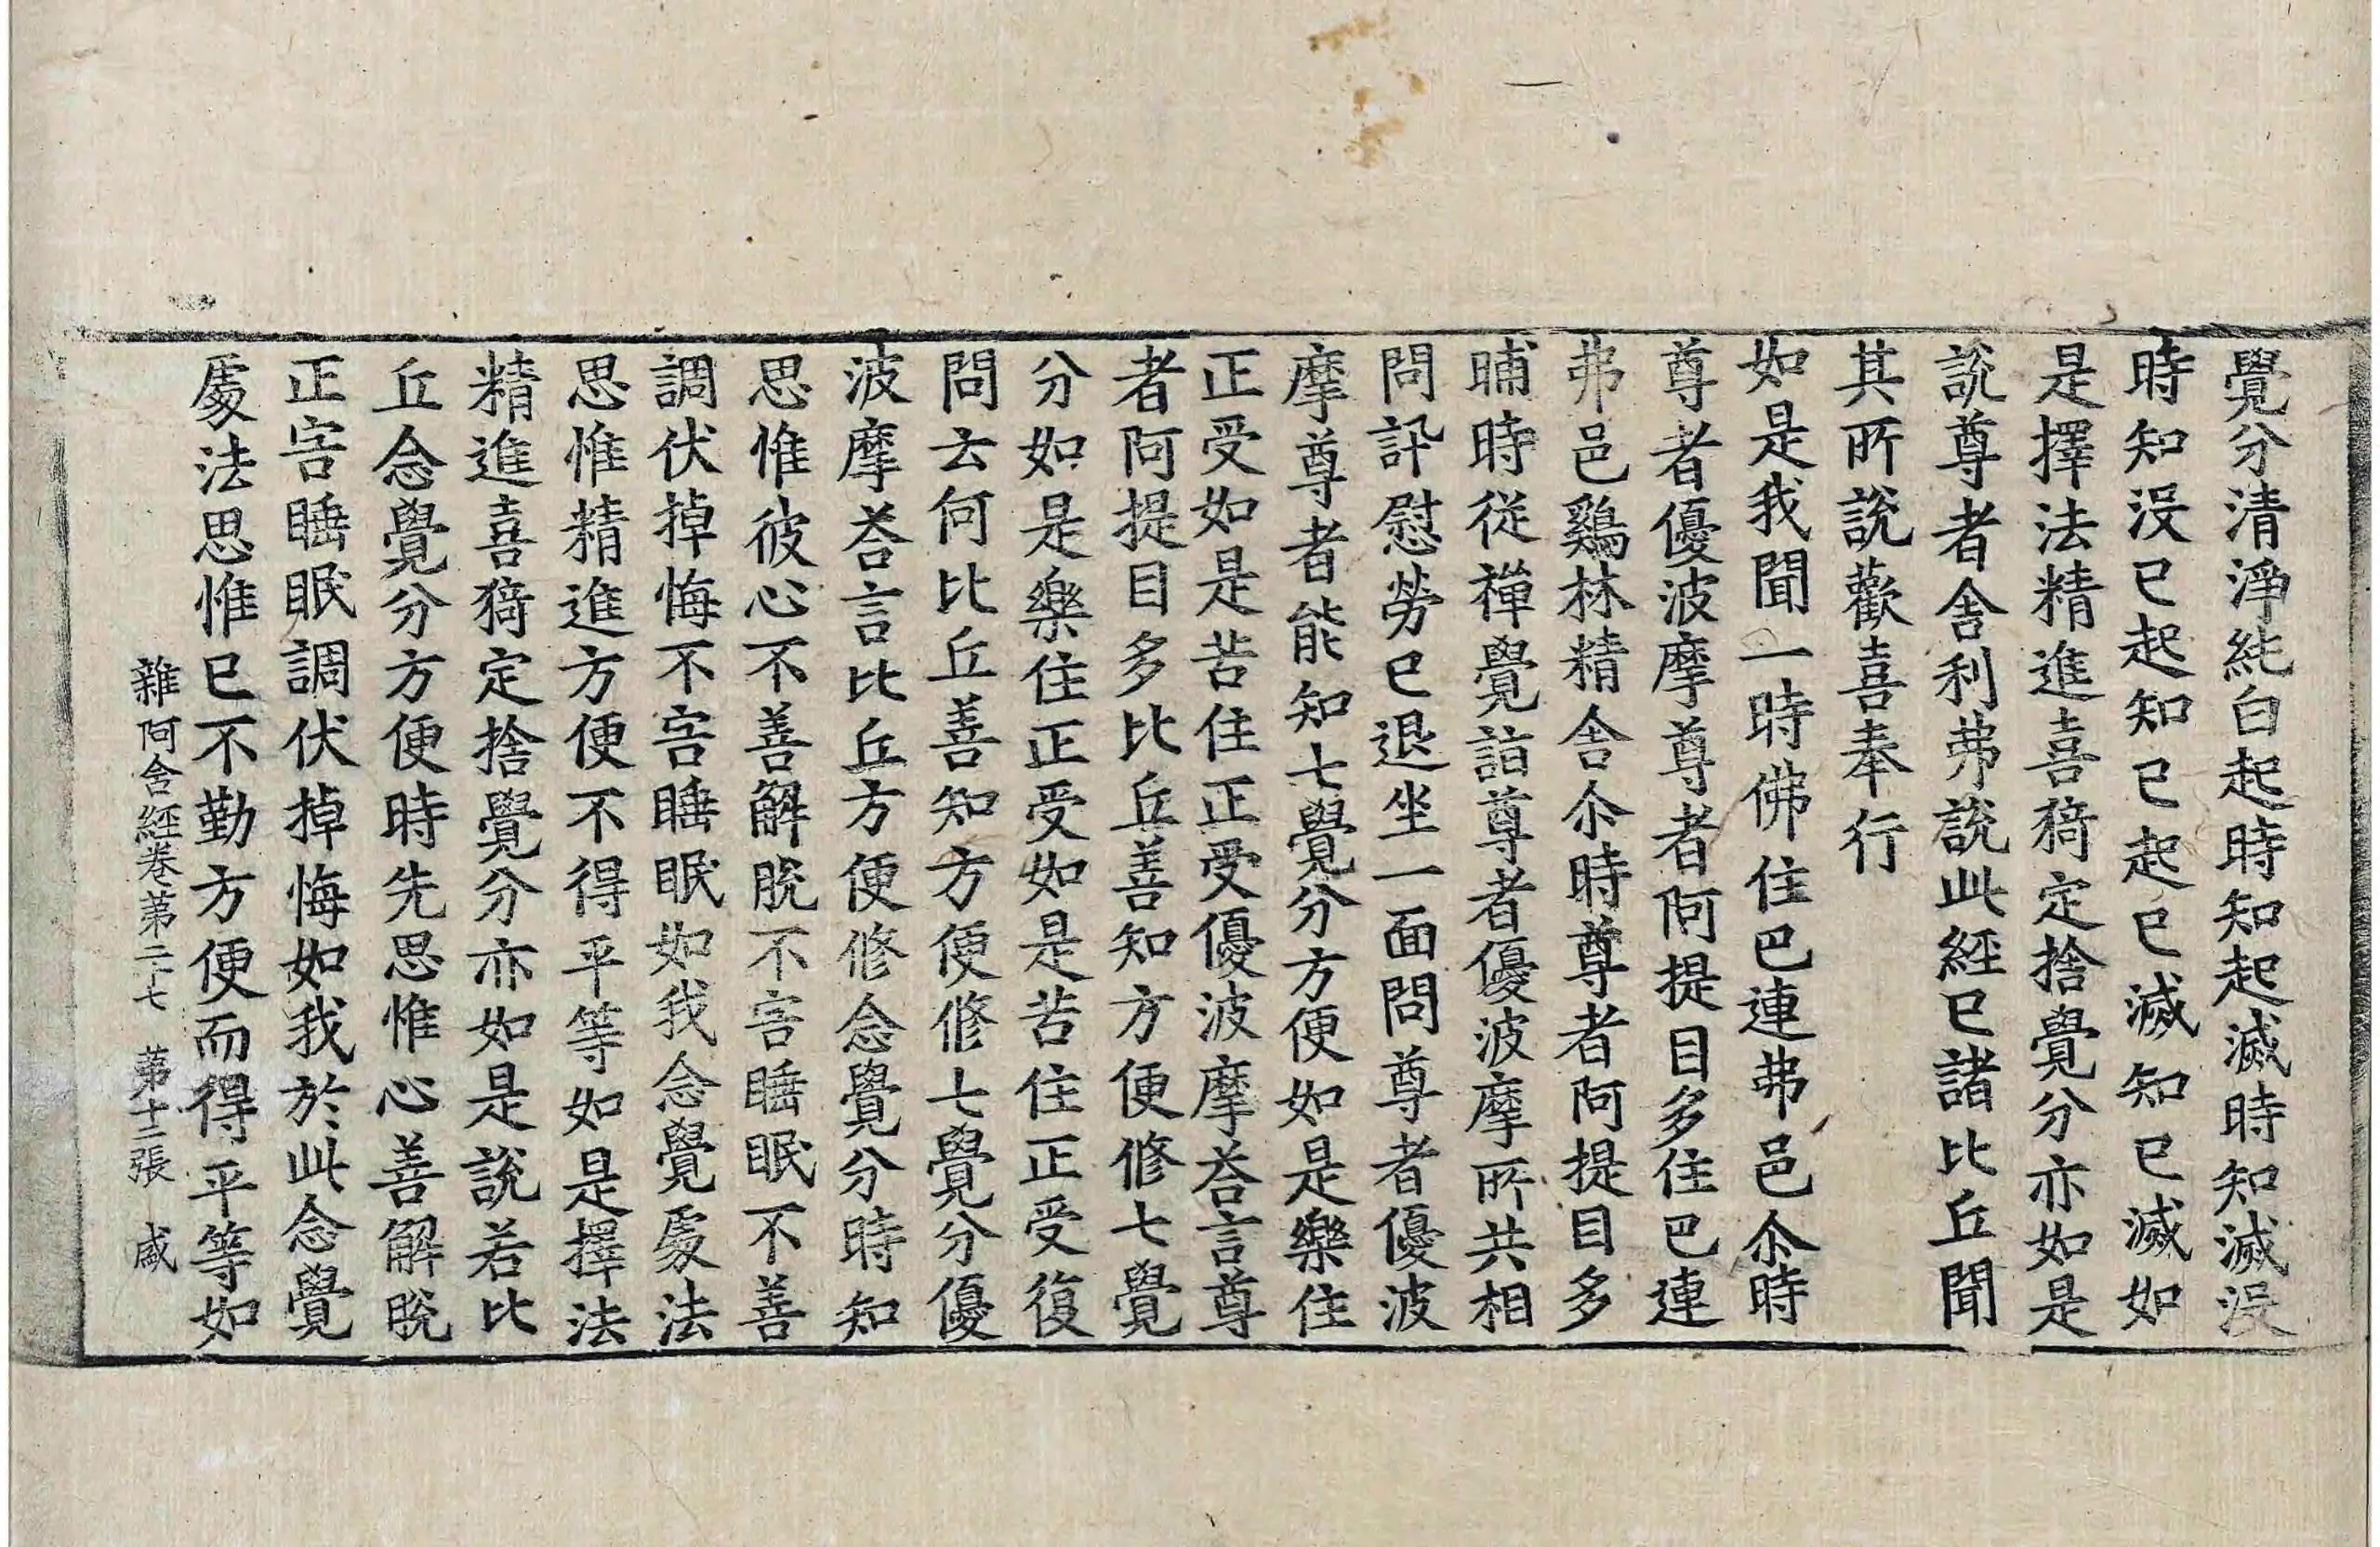 覺分清淨純白起時知起滅時知滅沒
時知沒已起知已起已滅知已滅如
是擇法精進喜猗定捨覺分亦如是
說尊者舍利弗說此經已諸比丘聞
其所說歡喜奉行
如是我聞一時佛住巴連弗邑尒時
尊者優波摩尊者阿提目多住巴連
弗邑鷄林精舍尒時尊者阿提目多
晡時從禪覺詣尊者優波摩所共相
問訊慰勞已退坐一面問尊者優波
摩尊者能知七覺分方便如是樂住
正受如是苦住正受優波摩荅言尊
者阿提目多比丘善知方便修七覺
分如是樂住正受如是苦住正受復
問云何比丘善知方便修七覺分優
波摩荅言比丘方便修念覺分時知
思惟彼心不善解脫不害睡眠不善
調伏掉悔不害睡眠如我念覺處法
思惟精進方便不得平等如是擇法
精進喜猗定捨覺分亦如是說若比
丘念覺分方便時先思惟心善解脫
正害睡眠調伏掉悔如我於此念覺
處法思惟已不勤方便而得平等如
雜阿含經卷第二十七 第十二張 盛